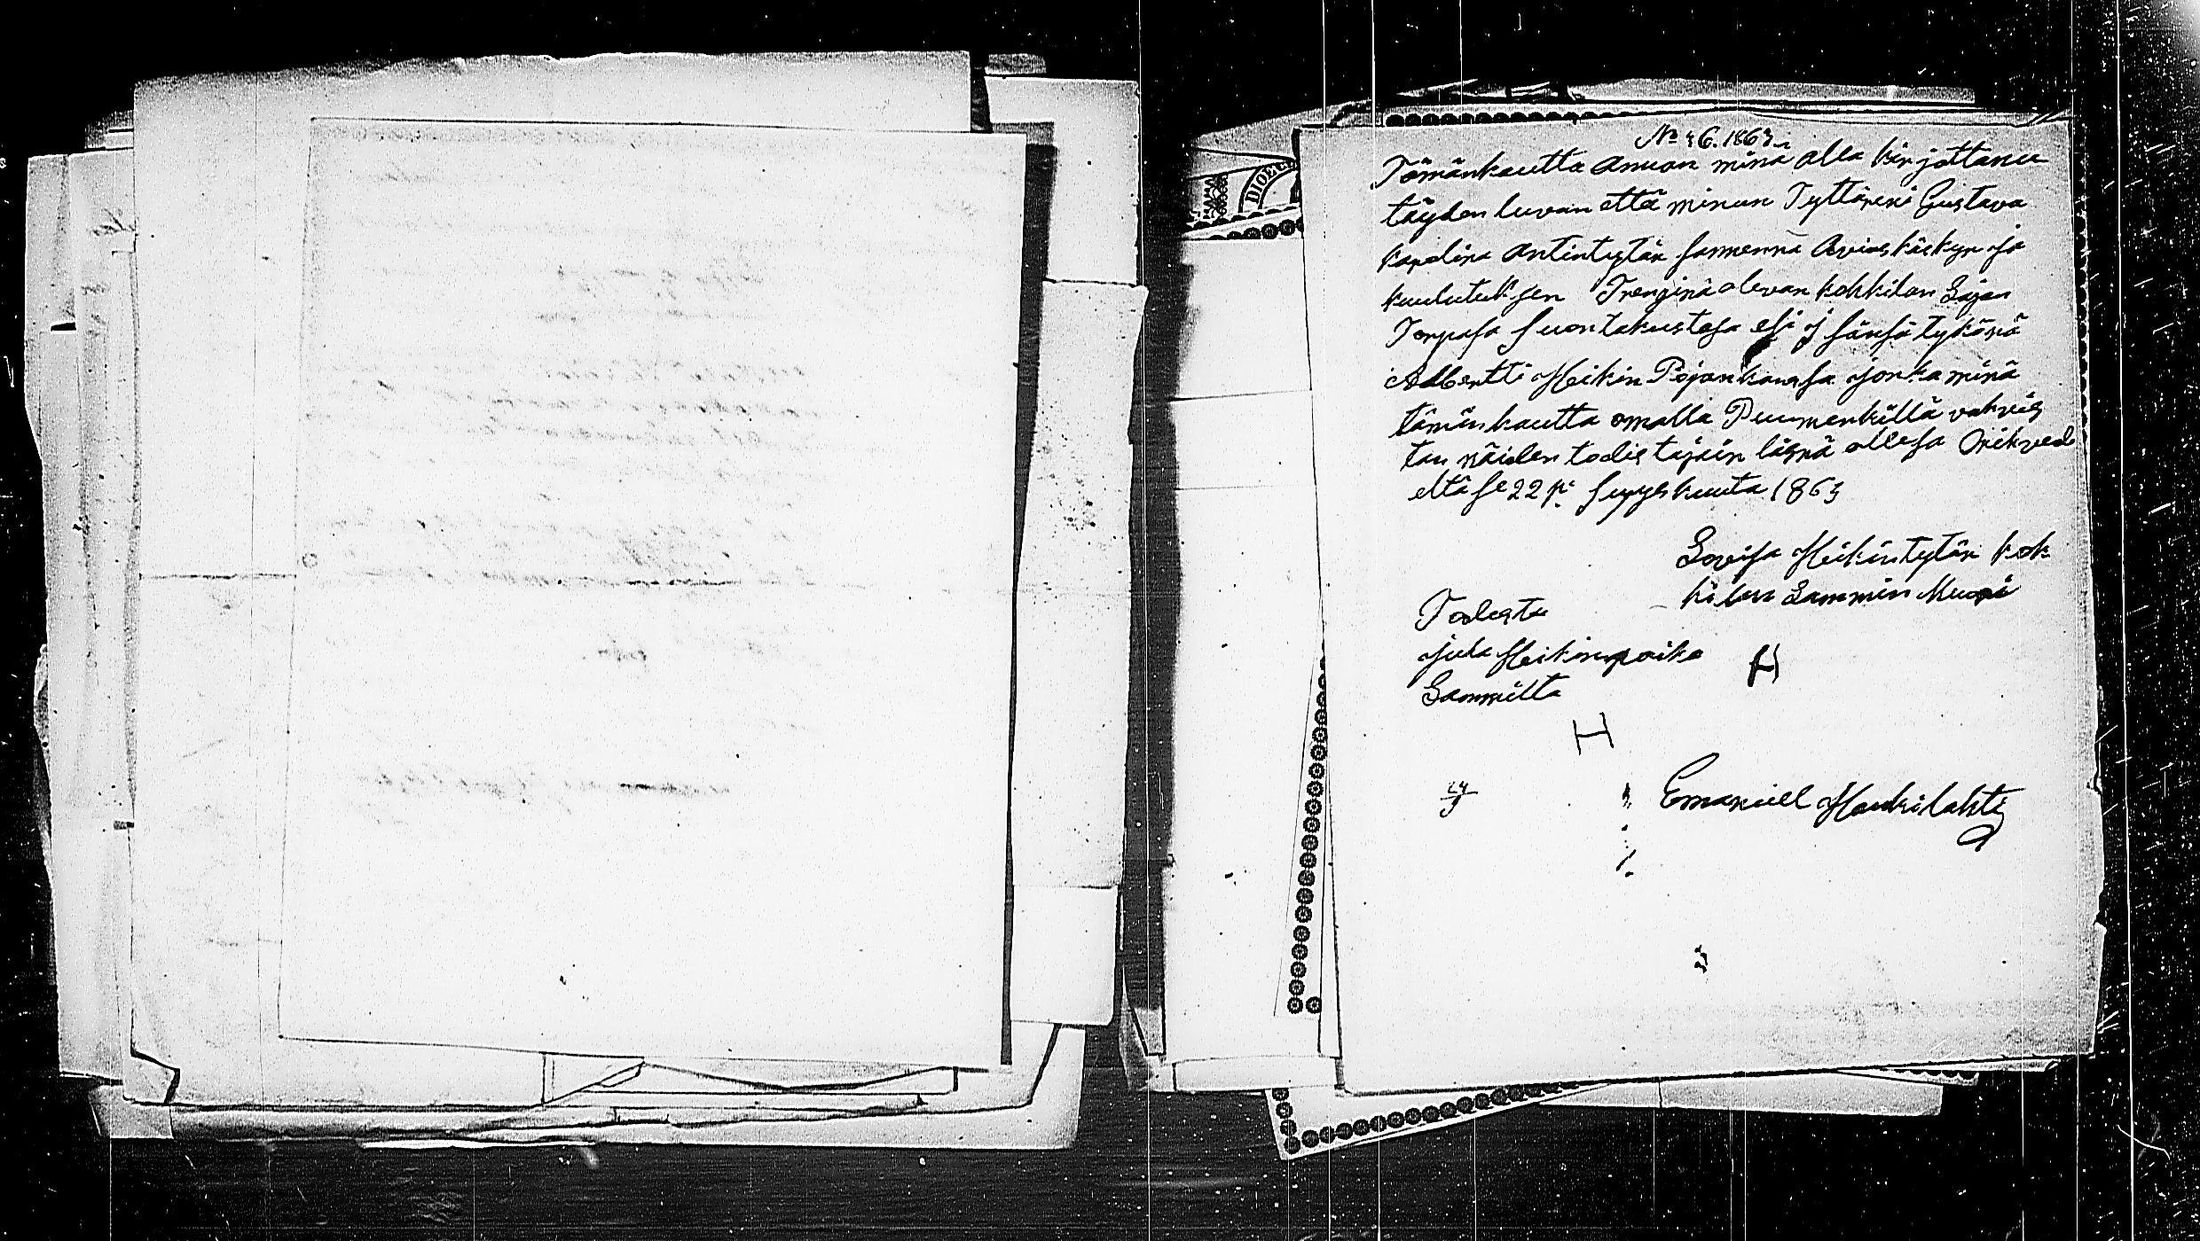 DIOEC
No 46. 1863.
Tämänkautta Annan minä alla kirjottanu
täyden luvan että minun Tyttäreni Gustava
karolina Antintytär sammenna Avios käskyn ja
kuulutuksen Trenginä olevan kokkilan Lajan
Torpasa Suontakustasa esi
Albertti Heikin Pojan kansa jonka minä
tämänkautta omalla Puumerkillä vahvis
tan näiden todistajain läsnä ollesa Orikved
eltä se 22 pi Syyskuuta 1863
Lovisa Heikintytär kok
kilan Lammin Muori
Todistu
Juha Heikinpoika
Lammilta
H
H
Emanuell Haukilahti